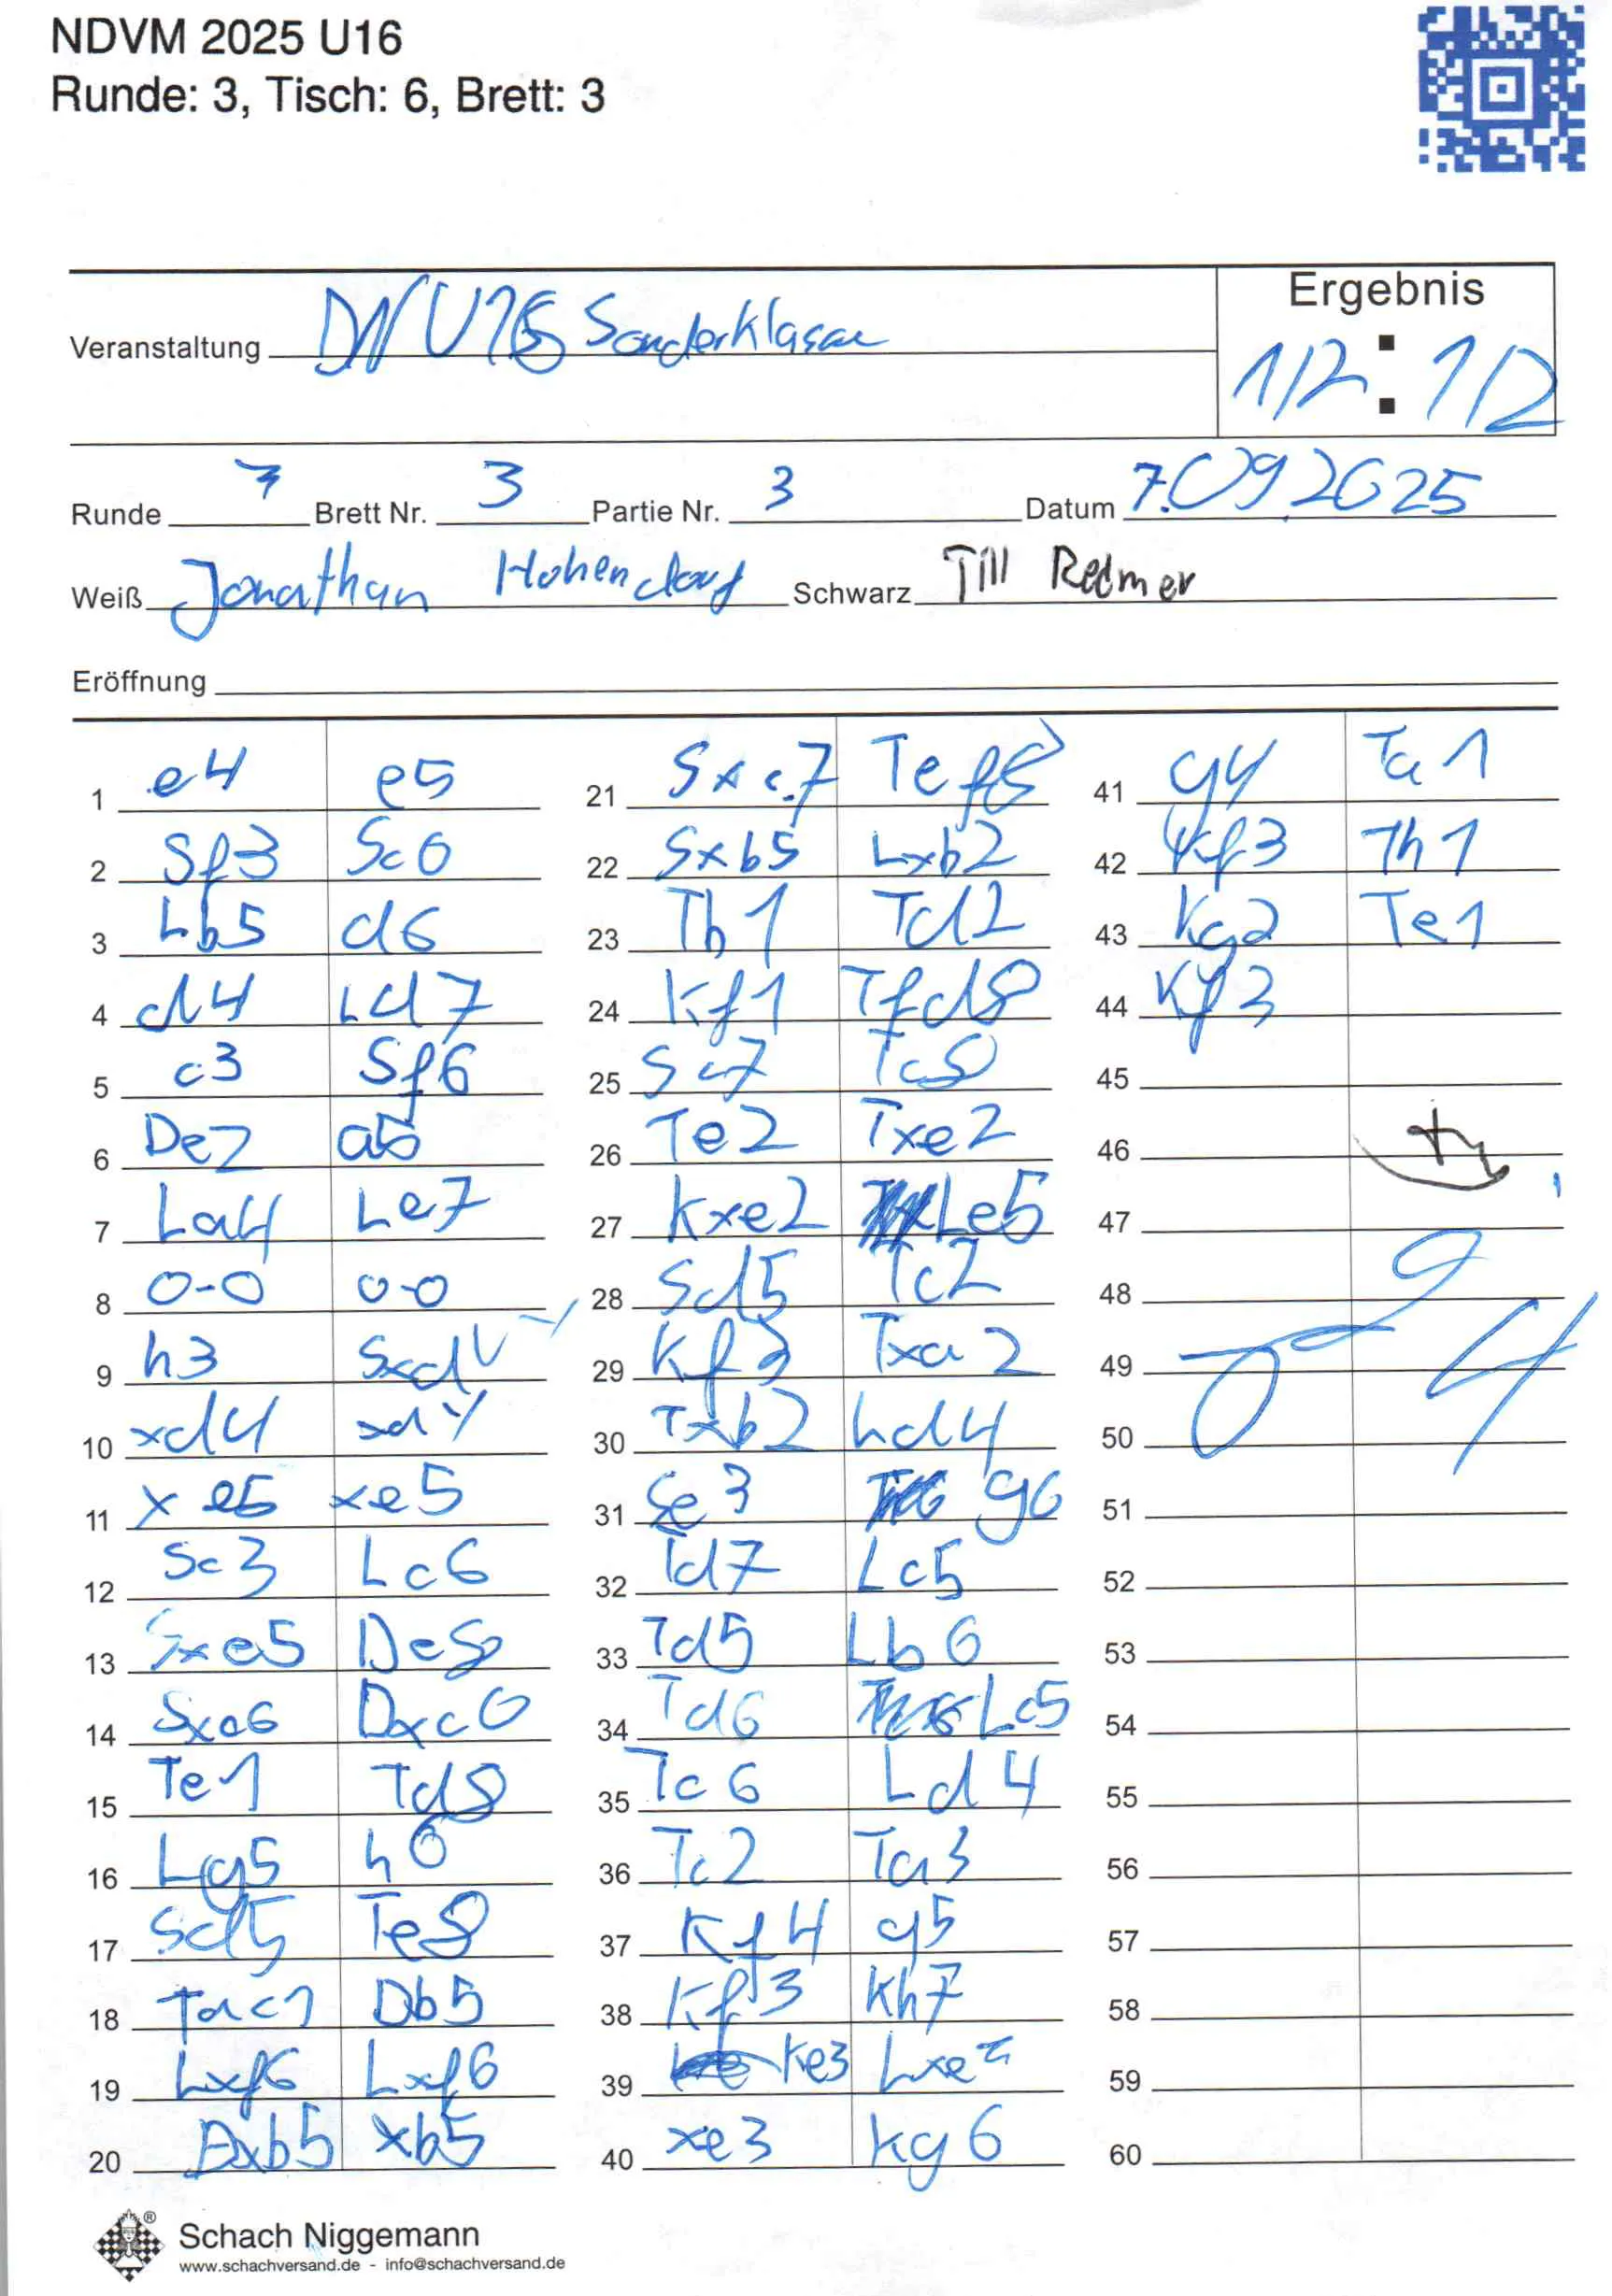 NDVM 2025 U16
Runde: 3, Tisch: 6, Brett: 3
Ergebnis
Veranstaltung Sonderklasse
1/2 : 1/2
Runde 3 Brett Nr. 3 Partie Nr. 3 Datum 7.09.2025
Weiß Jonathan Hohendorf Schwarz Till Redmer
Eröffnung
1 e4 e5
2 Sf3 Sc6
3 Lb5 d6
4 d4 Ld7
5 c3 Sf6
6 De2 a6
7 La4 Le7
8 0-0 0-0
9 h3 Sxd4
10 xd4 xd4
11 xe5 xe5
12 Sc3 Lc6
13 Sxe5 De8
14 Sxc6 Dxc6
15 Te1 Td8
16 Lg5 h6
17 Sd5 Te8
18 Tac1 Db5
19 Lxf6 Lxf6
20 Dxb5 xb5
21 Sxc7 Tef8
22 Sxb5 Lxb2
23 Tb1 Td2
24 Kf1 Tfd8
25 Sc7 Tc8
26 Te2 Txe2
27 Kxe2 Le5
28 Sd5 Tc2
29 Kf3 Txa2
30 Txb2 Ld4
31 Se3 g6
32 Td7 Lc5
33 Td5 Lb6
34 Td6 Lc5
35 Tc6 Ld4
36 Tc2 Ta3
37 Kf4 g5
38 Kf3 Kh7
39 Ke3 Lxe3
40 xe3 Kg6
41 g4 Ta1
42 Kf3 Th1
43 Kg2 Te1
44 Kf3
45
46
47
48
49
50
51
52
53
54
55
56
57
58
59
60
Schach Niggemann
www.schachversand.de - info@schachversand.de